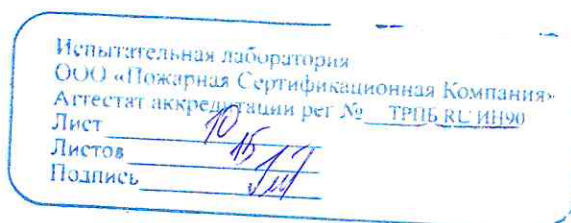 Испытательная лаборатория
ООО «Пожарная Сертификационная Компания»
Аттестат аккредитации рег № ТРПБ RU ИН90
Лист 10
Листов 15
Подпись